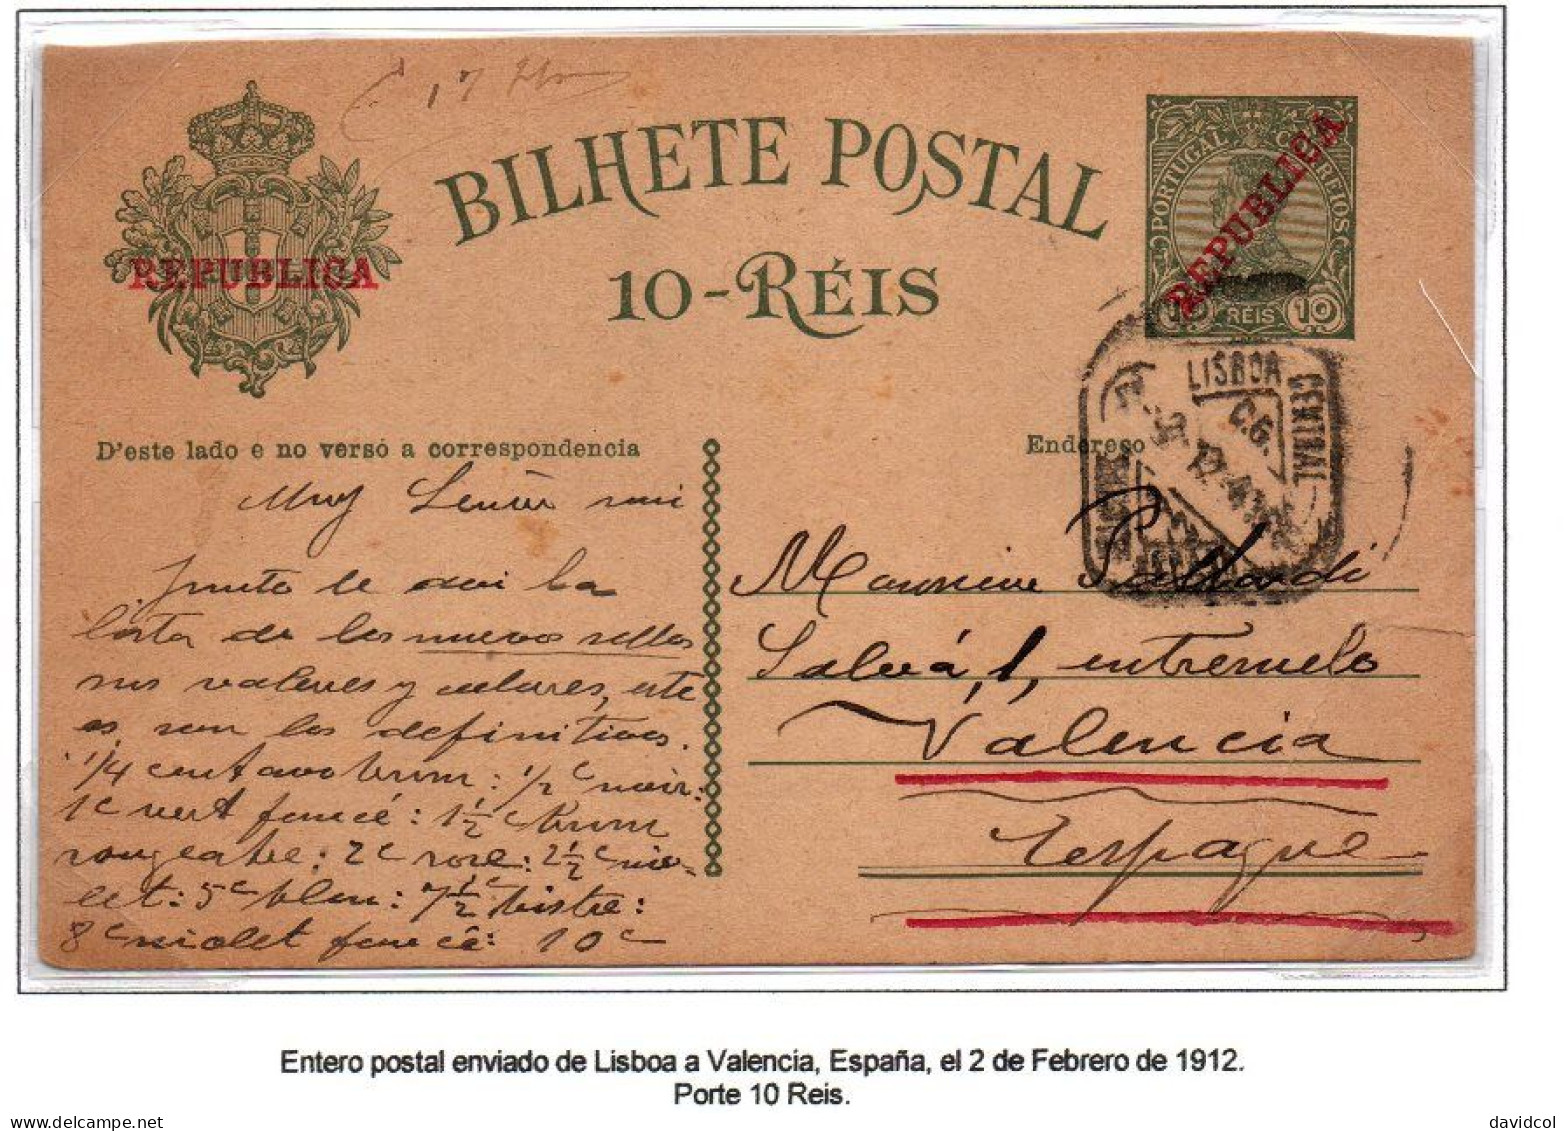 BILHETE POSTAL
10-RÉIS
REPUBLICA
PORTUGAL CORREIOS
REPUBLICA
10 RÉIS 10
LISBOA
CENTRAL
C.G.
D'este lado e no verso a correspondencia
Endereso
Muy Señor mi
Junto le
lista de los nuevos sellos
sus valeures y colures, este
es son los definitivos.
1/4 centavo brum: 1/2 c noir:
1c vert foncé: 1 1/2 c brum
rougeatre: 2c rose: 2 1/2 c vio-
let: 5c bleu: 7 1/2 c bistre:
8c violet foncé: 10c
Monsieur
Salvá, 1, entresuelo
Valencia
Espagne
Entero postal enviado de Lisboa a Valencia, España, el 2 de Febrero de 1912.
Porte 10 Reis.
davidcol